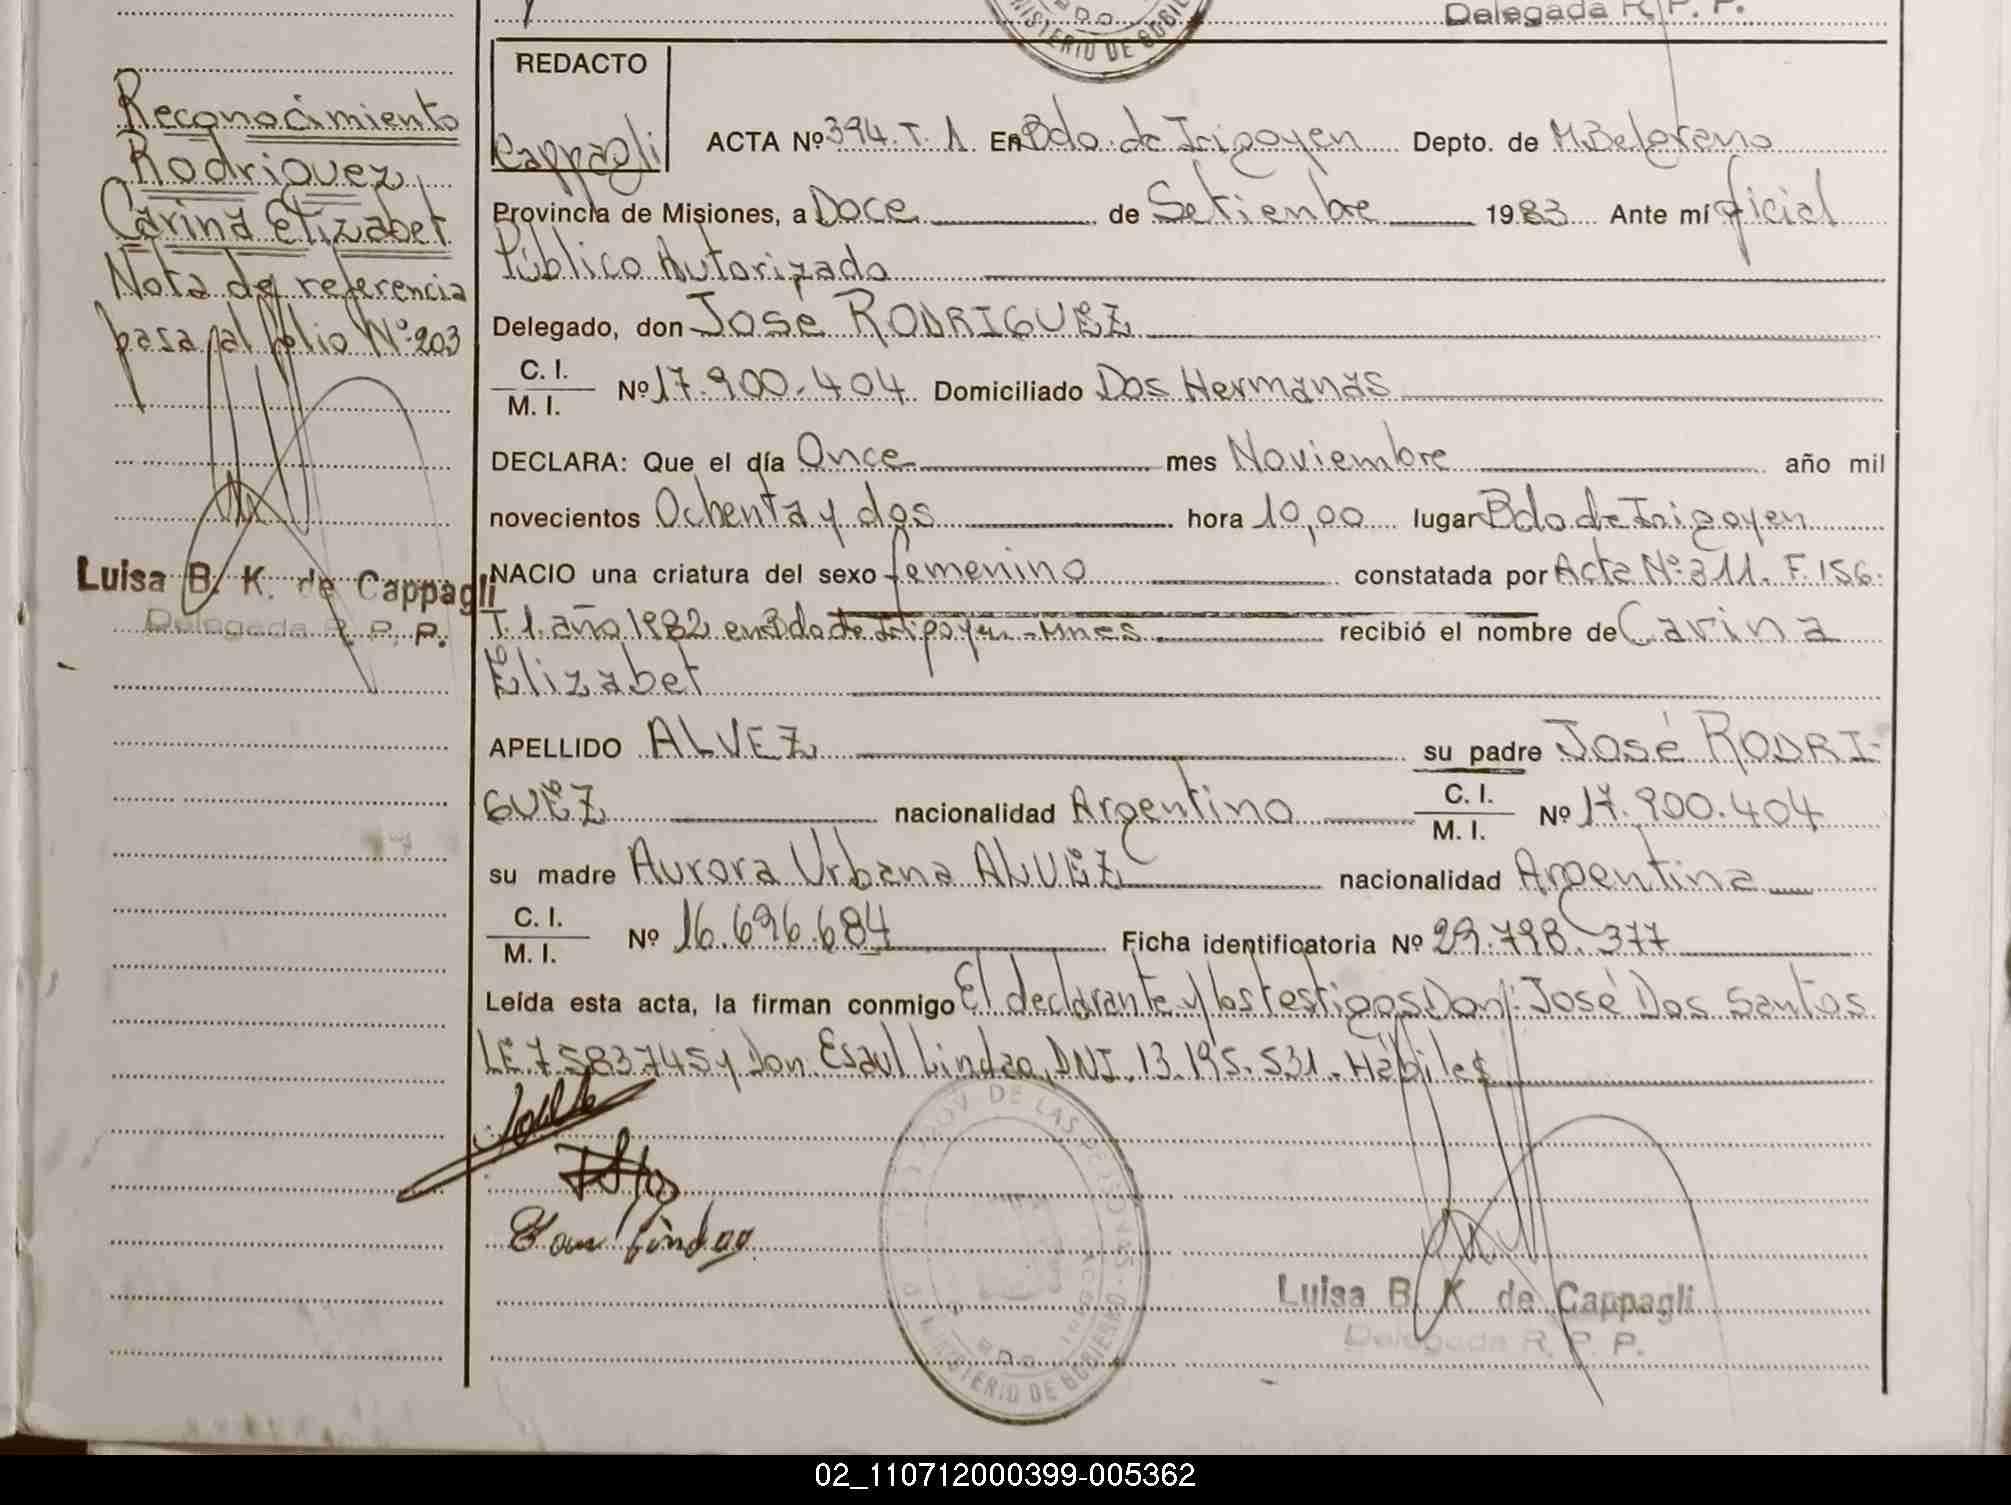 Delegada R. P. P.
MINISTERIO DE GOBIE
REDACTO
Cappagli
ACTA Nº 394. T. 1. En Bdo. de Irigoyen Depto. de M. Belgrano
Provincia de Misiones, a Doce de Setiembre 1983 Ante mí oficial
Público Autorizado
Delegado, don Jose RODRIGUEZ
C. I.
M. I. Nº 17.900.404 Domiciliado Dos Hermanas
DECLARA: Que el día Once mes Noviembre año mil
novecientos Ochenta y dos hora 10,00 lugar Bdo de Irigoyen
NACIO una criatura del sexo femenino constatada por Acta Nº 311. F. 156.
T. 1. año 1982 en Bdo de Irigoyen - Mnes recibió el nombre de Carina
Elizabet
APELLIDO ALVEZ su padre José RODRI-
GUEZ nacionalidad Argentino C. I.
M. I. Nº 17.900.404
su madre Aurora Urbana ALVEZ nacionalidad Argentina
C. I.
M. I. Nº 16.696.684 Ficha identificatoria Nº 29.798.377
Leída esta acta, la firman conmigo El declarante y los testigos Don: José Dos Santos
LE 7583745 y Don Esaul Lindao, DNI. 13.195.531. Hábiles
Luisa B. K. de Cappagli
Delegada R. P. P.
PROV. DE LAS PERSONAS
MINISTERIO DE GOBIERNO
Reconocimiento
Rodriguez
Carina Elizabet
Nota de referencia
pasa al folio Nº 203
Luisa B. K. de Cappagli
Delegada R. P. P.
02_110712000399-005362